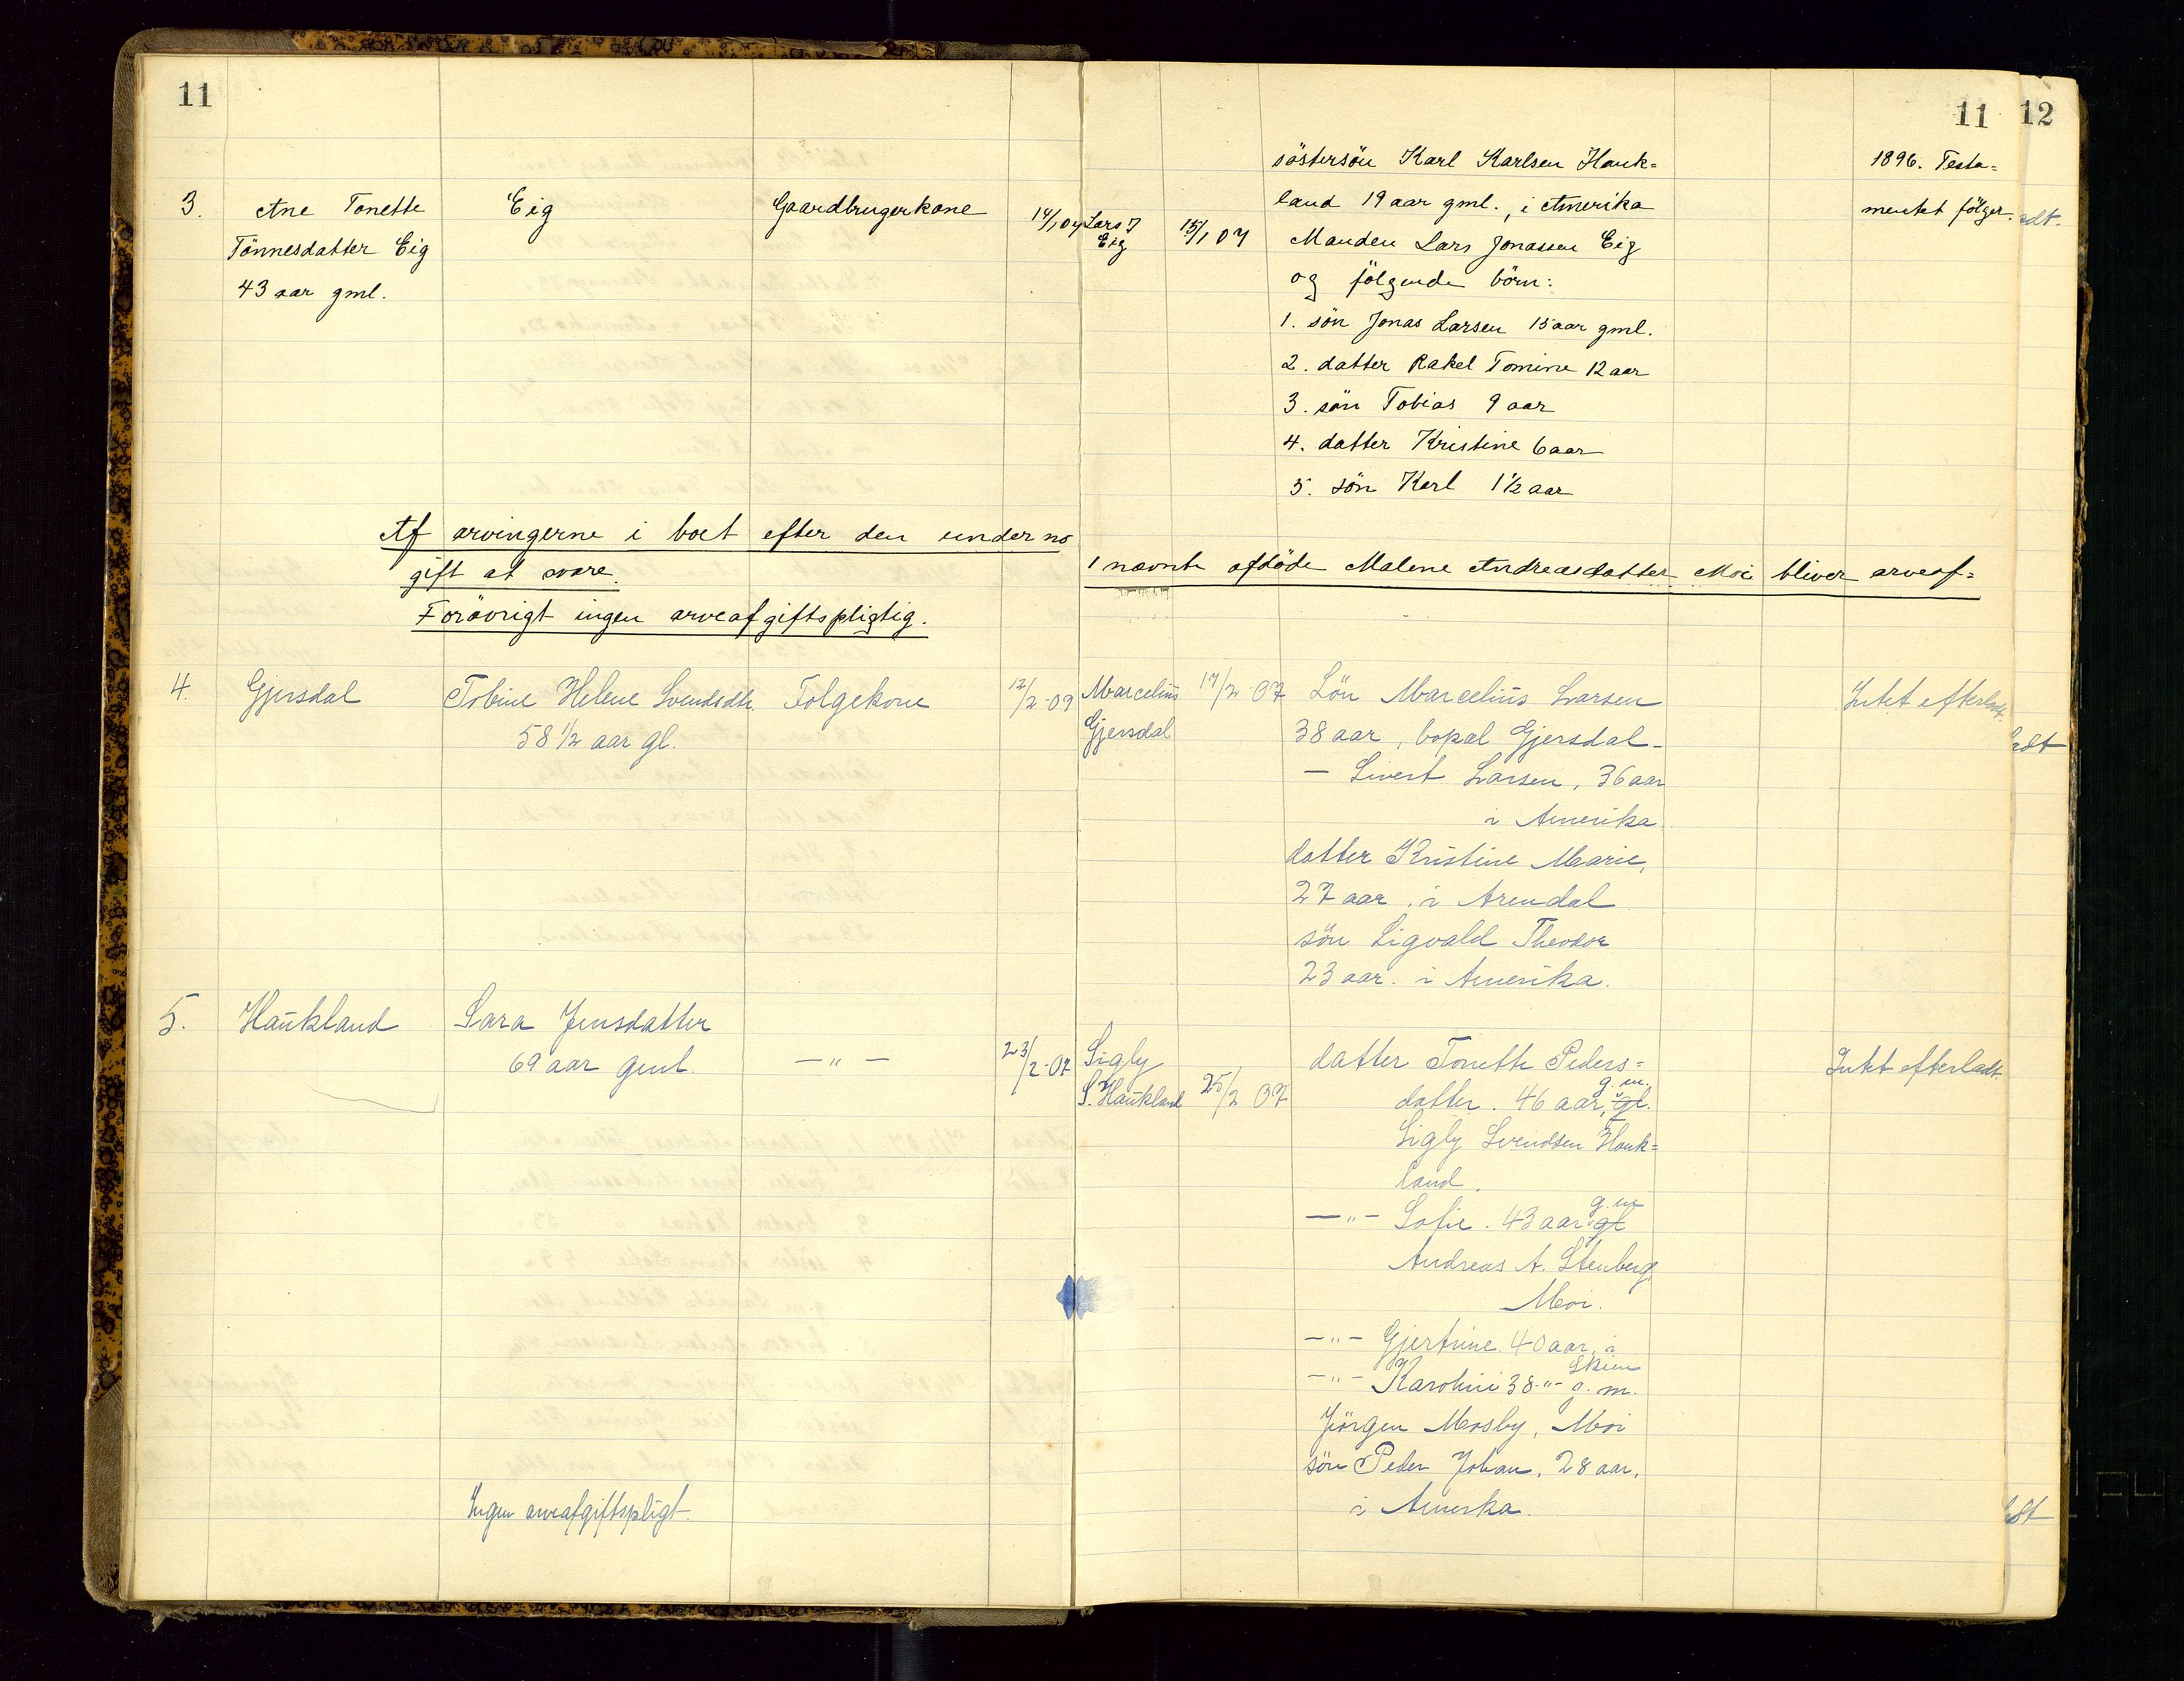 11
11 12
söstersön Karl Karlsen Hauk=
land 19 aar gml., i Amerika
1896. Testa=
mentet fölger.
adt.
3. Ane Tonette
Tönnesdatter Eig
43 aar gml.
Eig
Gaardbrugerkone
14/1 07
Lars J
Eig
15/1 07
Manden Lars Jonassen Eig
og fölgende börn:
1. sön Jonas Larsen 15 aar gml.
2. datter Rakel Tomine 12 aar
3. sön Tobias 9 aar
4. datter Kristine 6 aar
5. sön Karl 1½ aar
Af arvingerne i boet efter den under no
1 nævnte afdöde Malene Andreasdatter Moi bliver arveaf=
gift at svare.
Forövrigt ingen arveafgiftspligtig.
4. Gjersdal
Tobine Helene Svendsdtr.
58 1/2 aar gl.
Folgekone
12/2-07
Marcelius
Gjersdal
14/2-07
Sön Marcelius Larsen
38 aar, bopæl Gjersdal
— Sivert Larsen, 36 aar
i Amerika.
datter Kristine Marie,
27 aar, i Arendal
sön Sigvald Theodor
23 aar. i Amerika.
Intet efterladt.
adt
5. Haukland
Sara Jensdatter
69 aar gml.
— " —
23/2-07
Sigly
S. Haukland
25/2 07
datter Tonette Peders=
datter. 46 aar, gl. g. m.
Sigly Svendsen Hauk=
land.
— " — Sofie. 43 aar gl g. m
Andreas A. Stenberg
Moi.
— " — Gjertine. 40 aar, i
Skien
— " — Karoline 38 -"- g. m.
Jörgen Mosby, Moi
sön Peder Johan, 28 aar,
i Amerika.
Intet efterladt.
Ingen arveafgiftspligt.
adt